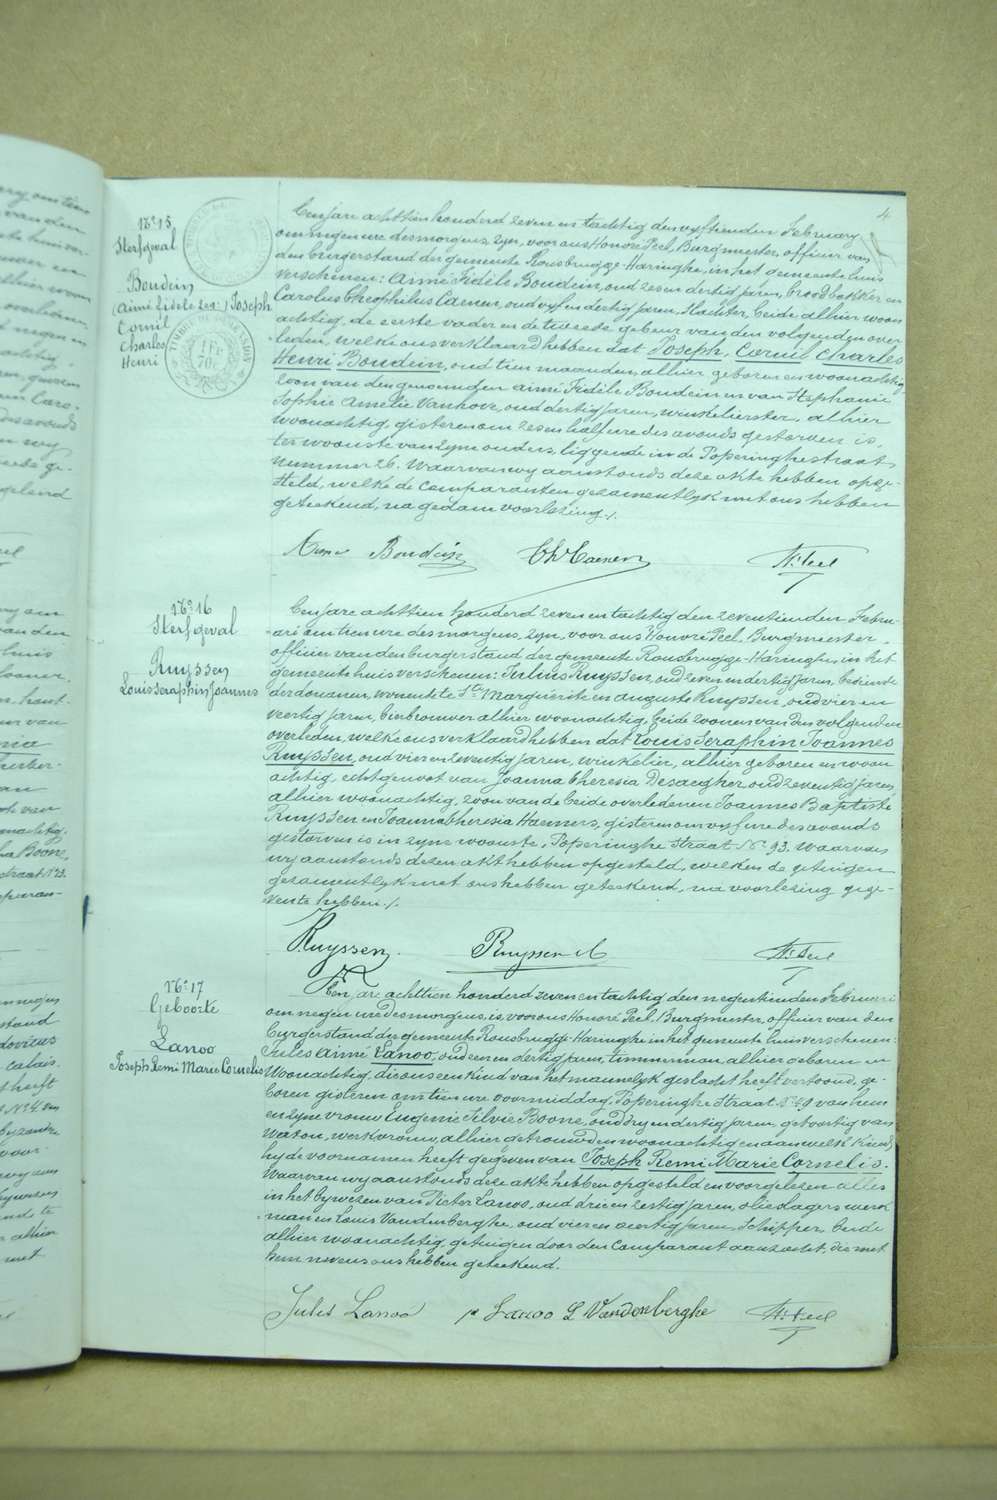 4
N° 15
Sterfgeval
Boudein
(Aimé Fidele Zes:) Joseph
Cornil
Charles
Henri
TIMBRE DE DIMENSION
1 FR
70 C
Een jare achttien honderd zeven en tachtig den vyftienden February
om negen ure des morgens, zyn, voor ons Honoré Peel, Burgmeester, officier van
den burgerstand der gemeente Rousbrugge-Haringhe, in het gemeente huis
verschenen: Aimé Fidèle Boudein, oud zes en dertig jaren, broodbakker en
Carolus Theophilus Caenen, oud vyf en dertig jaren, slachter, beide alhier woon
achtig, de eerste vader en de tweede gebuer van den volgenden over
leden, welke ons verklaard hebben dat Joseph, Cornil Charles
Henri Boudein, oud tien maanden, alhier geboren en woonachtig
zoon van den genoemden Aimé Fidèle Boudein en van Stephanie
Sophie Amelie Vanhove, oud dertig jaren, winkelierster, alhier
woonachtig, gisteren om zes en half ure des avonds gestorven is,
ter woonste van zyne ouders, liggende in de Poperinghestraat
nummer 26. Waarvan wy aanstonds deze akte hebben opge-
steld, welke de comparanten gezamentlyk met ons hebben
geteekend, na gedane voorlezing ./.
Aimé Boudein Ch Caenen H. Peel
N° 16
Sterfgeval
Ruyssen
Louis Seraphin Joannes
Een jare achttien honderd zeven en tachtig den zeventienden Febru-
ari om tien ure des morgens, zyn, voor ons Honoré Peel, Burgmeester,
officier van den burgerstand der gemeente Rousbrugge-Haringhe, in het
gemeente huis verschenen: Julius Ruyssen, oud zeven en dertig jaren, bediende
der douanen, wonende te Ste Marguerite en Auguste Ruyssen, oud vier en
veertig jaren, bierbrouwer alhier woonachtig, beide zoonen van den volgenden
overleden, welke ons verklaard hebben dat Louis Seraphin Joannes
Ruyssen, oud vier en zeventig jaren, winkelier, alhier geboren en woon
achtig, echtgenoot van Joanna Theresia Desaegher, oud zeventig jaren,
alhier woonachtig, zoon van de beide overledenen Joannes Baptiste
Ruyssen en Joanna Theresia Haemers, gisteren om vyf ure des avonds
gestorven is in zyne woonste, Poperinghe straat N° 93. Waarvan
wy aanstonds dezen akt hebben opgesteld, welken de getuigen
gezamentlyk met ons hebben geteekend, na voorlezing gege-
ven te hebben ./.
Ruyssen Ruyssen A H. Peel
N° 17
Geboorte
Lanoo
Joseph Remi Marie Cornelis
Een jare achttien honderd zeven en tachtig den negentienden Februari
om negen ure des morgens, is, voor ons Honoré Peel, Burgmeester, officier van den
burgerstand der gemeente Rousbrugge-Haringhe in het gemeente huis verschenen:
Jules Aimé Lanoo, oud een en dertig jaren, timmerman, alhier geboren en
woonachtig, die ons een kind van het mannelyk geslacht heeft vertoond, ge-
boren gisteren om tien ure voormiddag, Poperinghe Straat N° 49 van hem
en zyne vrouw Eugenie Silvie Boone, oud dry en dertig jaren, geboortig van
Watou, werkvrouw, alhier getrouwd en woonachtig en aan welk kind
hy de voornamen heeft gegeven van Joseph Remi Marie Cornelis.
Waarvan wy aanstonds deze akte hebben opgesteld en voorgelezen alles
in het bywezen van Pieter Lanoo, oud drie en zestig jaren, olieslagers werk
man en Louis Vandenberghe, oud vier en veertig jaren, Schipper, beide
alhier woonachtig, getuigen door den Comparant aanzocht, die met
hem nevens ons hebben geteekend.
Jules Lanoo p Lanoo L Vandenberghe H. Peel